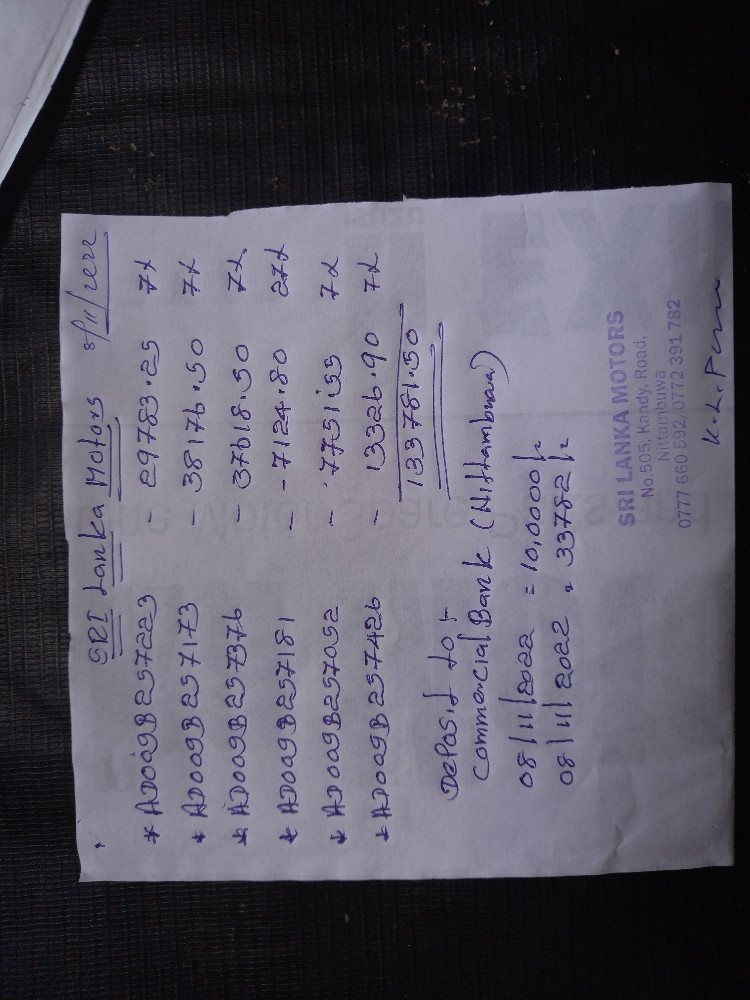 SRI Lanka Motors 8/11/2022
* AD009B257223 - 29783.25 72
* AD009B257173 - 38176.50 72
* AD009B257376 - 37618.50 72
* AD009B257181 - - 7124.80 272
* AD009B257052 - 7751.55 72
* AD009B257426 - 13326.90 72
133781.50
Deposit to :-
Commercial Bank (Nittambuwa)
08/11/2022 = 10,0000/=
08/11/2022 = 33782/=
SRI LANKA MOTORS
No.505, Kandy, Road,
Nittambuwa
0777 660 592, 0772 391 782